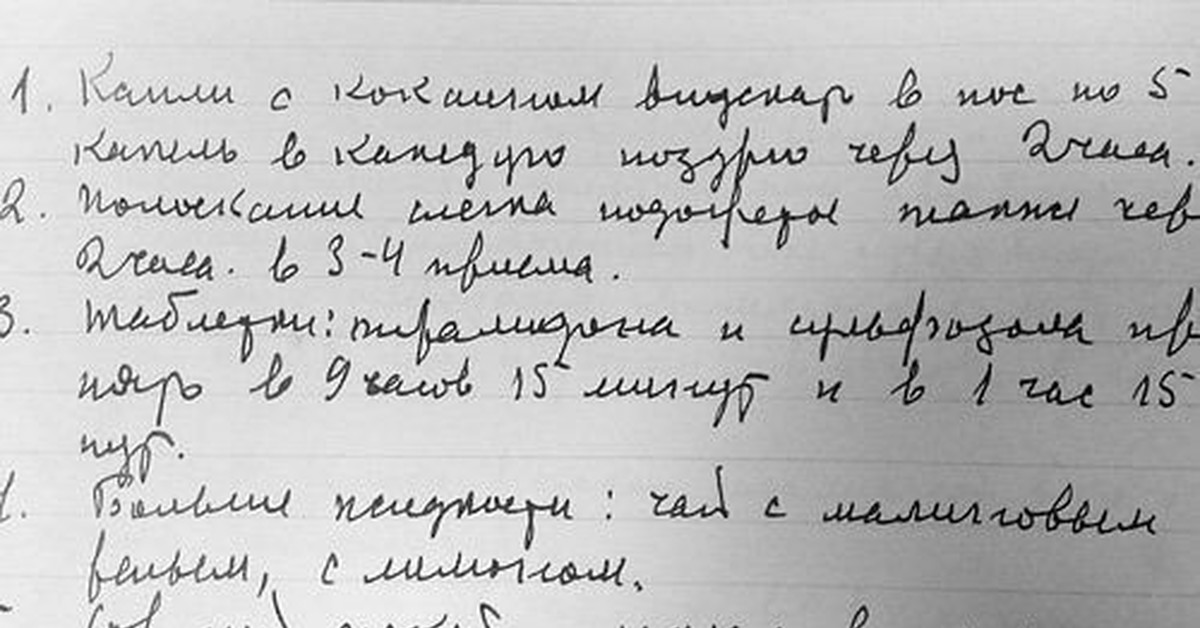 1. Капли с кокаином в нос по 5
капель в каждую ноздрю через 2 часа.
2. Полоскание слегка подогретое чер
2 часа. в 3-4 приема.
3. Таблетки: пирамидона и сульфозола пр
в 9 часов 15 минут и в 1 час 15
нут.
Больше жидкости: чай с малиновым
реньем, с лимоном.